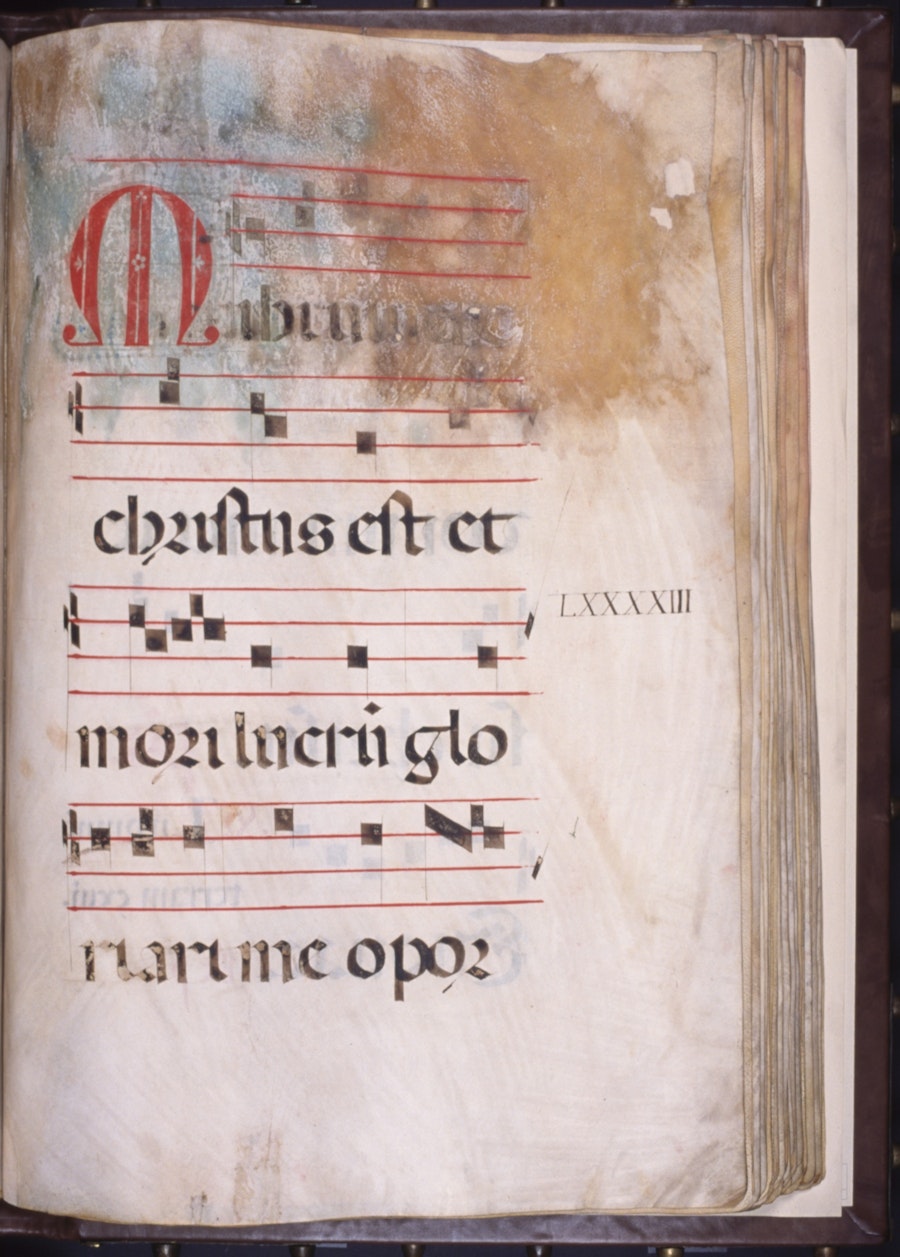 M
christus est et
LXXXXIII
mori lucrū glo
riari me opor